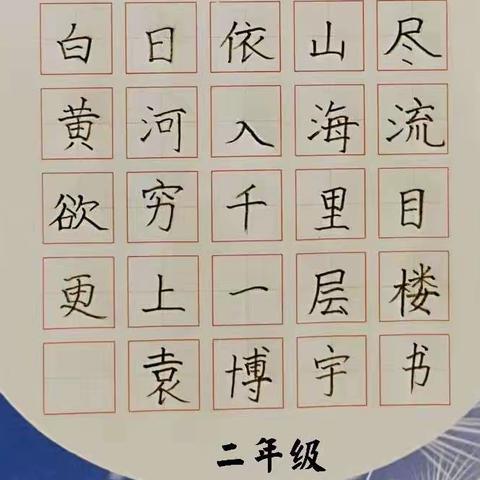 白日依山尽
黄河入海流
欲穷千里目
更上一层楼
袁博宇书
二年级